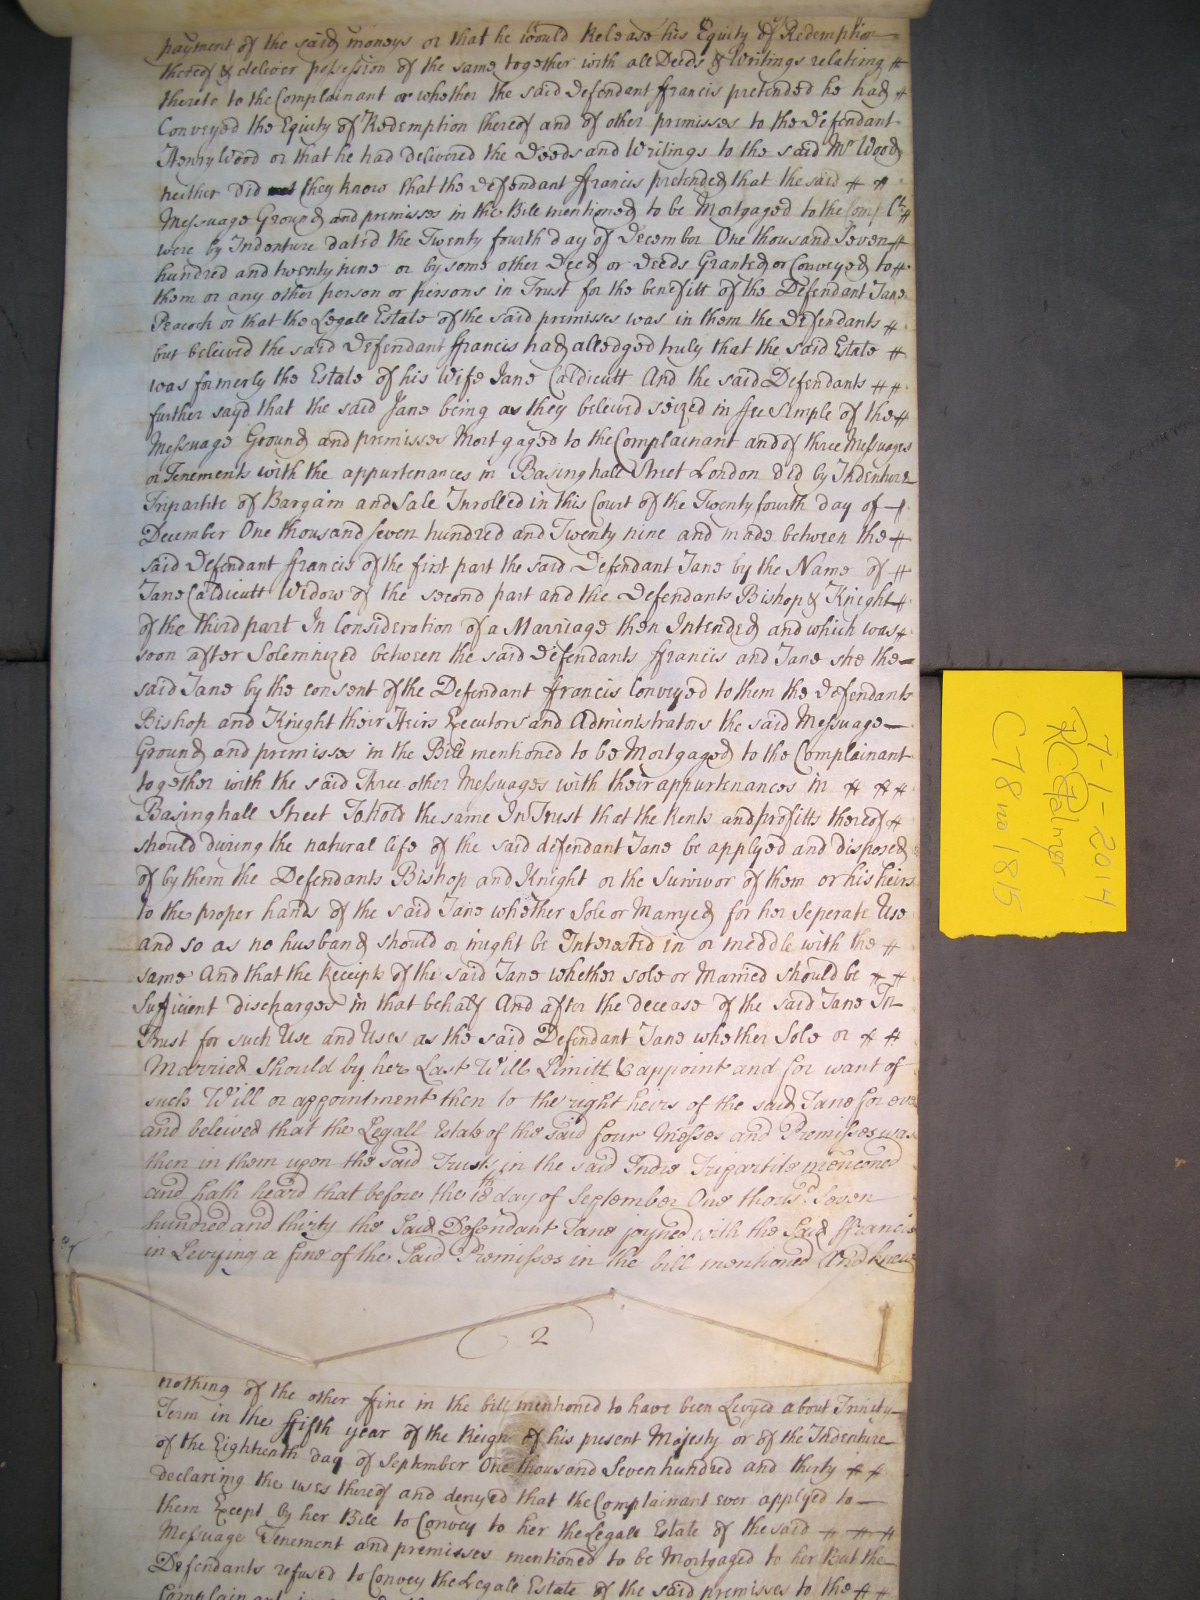 payment of the said moneys or that he would Release his Equity of Redemption
thereof & deliver possession of the same together with all Deeds & Writings relating #
thereto to the Complainant or whether the said Defendant ffrancis pretended he had #
Conveyed the Equity of Redemption thereof and of other premisses to the Defendant
Henry Wood or that he had delivered the Deeds and Writings to the said Mr Wood
neither did they know that the Defendant ffrancis pretended that the said # #
Messuage Ground and premisses in the Bill mentioned to be Mortgaged to the Complt #
were by Indenture dated the Twenty fourth day of December One thousand Seven #
hundred and twenty nine or by some other Deed or Deeds Granted or Conveyed to #
them or any other person or persons in Trust for the benefitt of the Defendant Jane
Peacock or that the Legall Estate of the said premisses was in them the Defendants #
but beleived the said Defendant ffrancis had alledged truly that the said Estate #
was formerly the Estate of his Wife Jane Caldicutt And the said Defendants # #
further sayd that the said Jane being as they beleived seized in ffee Simple of the #
Messuage Ground and premisses Mortgaged to the Complainant and of three Messuages
or Tenements with the appurtenances in Basinghall Street London did by Indenture
Tripartite of Bargain and Sale Inrolled in this Court of the Twenty fourth day of #
December One thousand seven hundred and Twenty nine and made between the #
said Defendant ffrancis of the first part the said Defendant Jane by the Name of #
Jane Caldicutt Widow of the second part and the Defendants Bishop & Knight #
of the third part In Consideration of a Marriage then Intended and which was #
soon after Solemnized between the said Defendants ffrancis and Jane she the
said Jane by the consent of the Defendant ffrancis Conveyed to them the Defendants
Bishop and Knight their Heirs Executors and Administrators the said Messuage
Ground and premisses in the Bill mentioned to be Mortgaged to the Complainant
together with the said Three other Messuages with their appurtenances in # # #
Basinghall Street To hold the same In Trust that the Rents and profitts thereof #
should during the natural life of the said defendant Jane be applyed and disposed
of by them the Defendants Bishop and Knight or the Survivor of them or his heirs
to the proper hands of the said Jane whether Sole or Marryed for her Seperate Use
and so as no husband should or might be Interested in or meddle with the #
same And that the Receipts of the said Jane whether sole or Married should be # #
Sufficient discharges in that behalf And after the decease of the said Jane In
Trust for such Use and Uses as the said Defendant Jane whether Sole or # #
Married should by her Last Will Limitt & appoint and for want of
such Will or appointment then to the right heirs of the said Jane for ever
and beleived that the Legall Estate of the said four Messes and Premisses was
then in them upon the said Trusts in the said Indre Tripartite mentioned
and hath heard that before the 18th day of September One thous.d Seven
hundred and thirty the Said Defendant Jane joyned with the Said ffrancis
in Levying a fine of the Said Premisses in the bill mentioned And knew
2
nothing of the other ffine in the bill mentioned to have been Levyed about Trinity
Term in the ffifth year of the Reign of his present Majesty or of the Indenture
of the Eighteenth day of September One thousand Seven hundred and thirty # #
declaring the uses thereof and denyed that the Complainant ever applyed to
them Except by her Bill to Convey to her the Legall Estate of the said # # #
Messuage Tenement and premisses mentioned to be Mortgaged to her But the
Defendants refused to Convey the Legall Estate of the said premisses to the # #
7-1-2014
RC Palmer
C78 no 1815